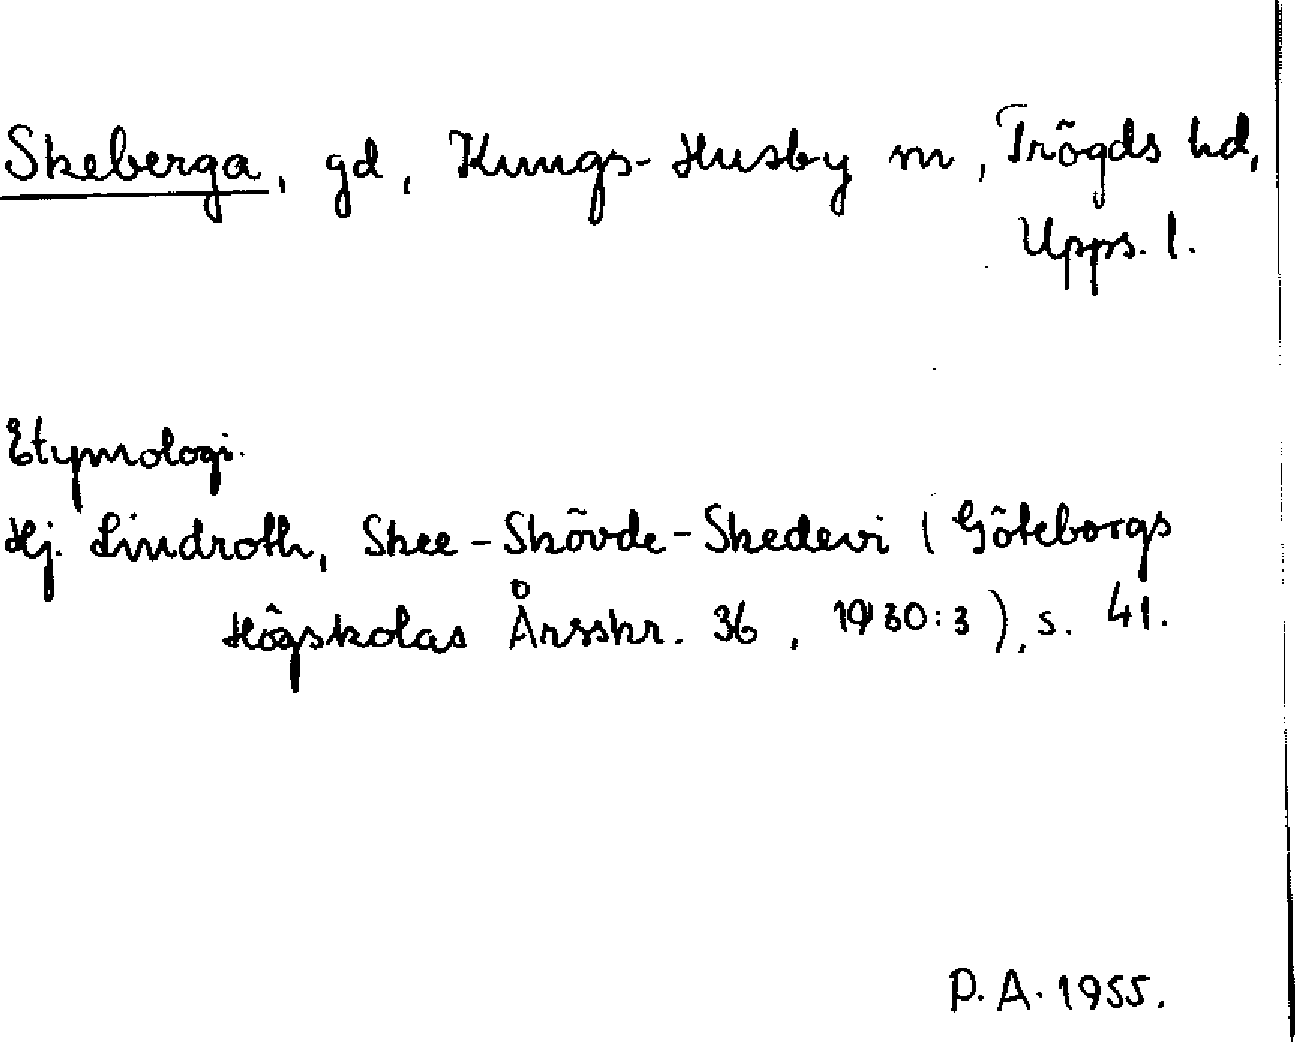 Skeberga, gd, Kungs-Husby sn, Trögds hd,
Upps. l.
Etymologi.
Hj. Lindroth, Skee-Skövde-Skedevi (Göteborgs
Högskolas Årsskr. 36, 1930:3), s. 41.
P.A. 1955.